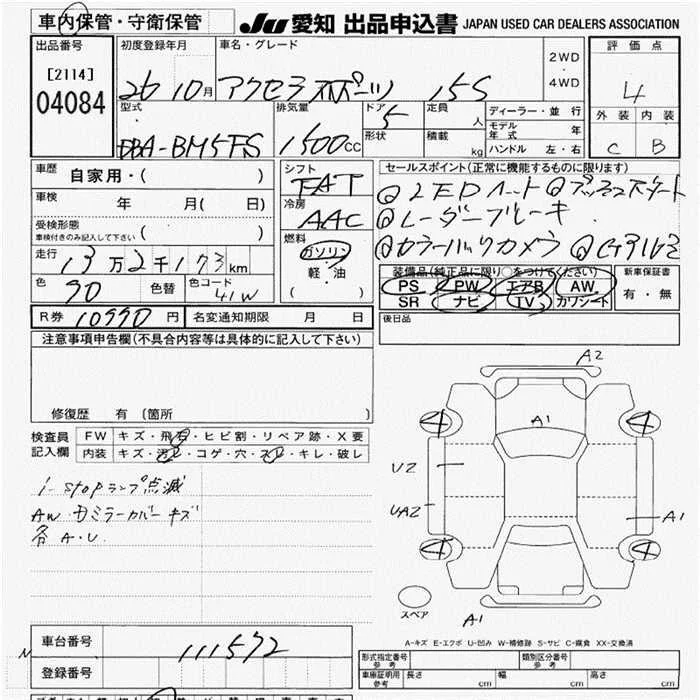 車内保管・守衛保管
JU 愛知 出品申込書 JAPAN USED CAR DEALERS ASSOCIATION
出品番号
[2114]
04084
初度登録年月
26 10月
車名・グレード
アクセラスポーツ 15S
2WD
・
4WD
評価点
4
外装 内装
C B
型式
DBA-BM5FS
排気量
1500cc
ドア
5
形状
定員
人
積載
kg
ディーラー・並行
モデル年式 年
ハンドル 左・右
車歴
自家用・( )
車検
年 月( 日)
受検形態
車検付きのみ記入して下さい ( )
走行
13万2千173km
色
90
色替
色コード
41W
シフト
FAT
冷房
AAC
燃料
ガソリン
・
軽・油
( )
セールスポイント(正常に機能するものに限ります)
LEDヘット
レーダーブレーキ
カラーバックカメラ
装備品(純正品に限り○をつけてください)
PS PW エアB AW
SR ナビ TV カワシート
新車保証書
有・無
R券 10990円
名変通知期限 月 日
後日品
注意事項申告欄(不具合内容等は具体的に記入して下さい)
修復歴 有 (箇所 )
検査員
記入欄
FW キズ・飛石・ヒビ割・リペア跡・X要
内装 キズ・汚レ・コゲ・穴・スレ・キレ・破レ
i-stopランプ点滅
AW カミラーカバーキズ
各 A.U
A2
A1
4
4
U2
UA2
A1
4
4
スペア
A1
A-キズ E-エクボ U-凹み W-補修跡 S-サビ C-腐食 XX-交換済
車台番号
111572
登録番号
形式指定番号
参考
類別区分番号
参考
車庫証明用
参考
長さ cm
幅 cm
高さ cm